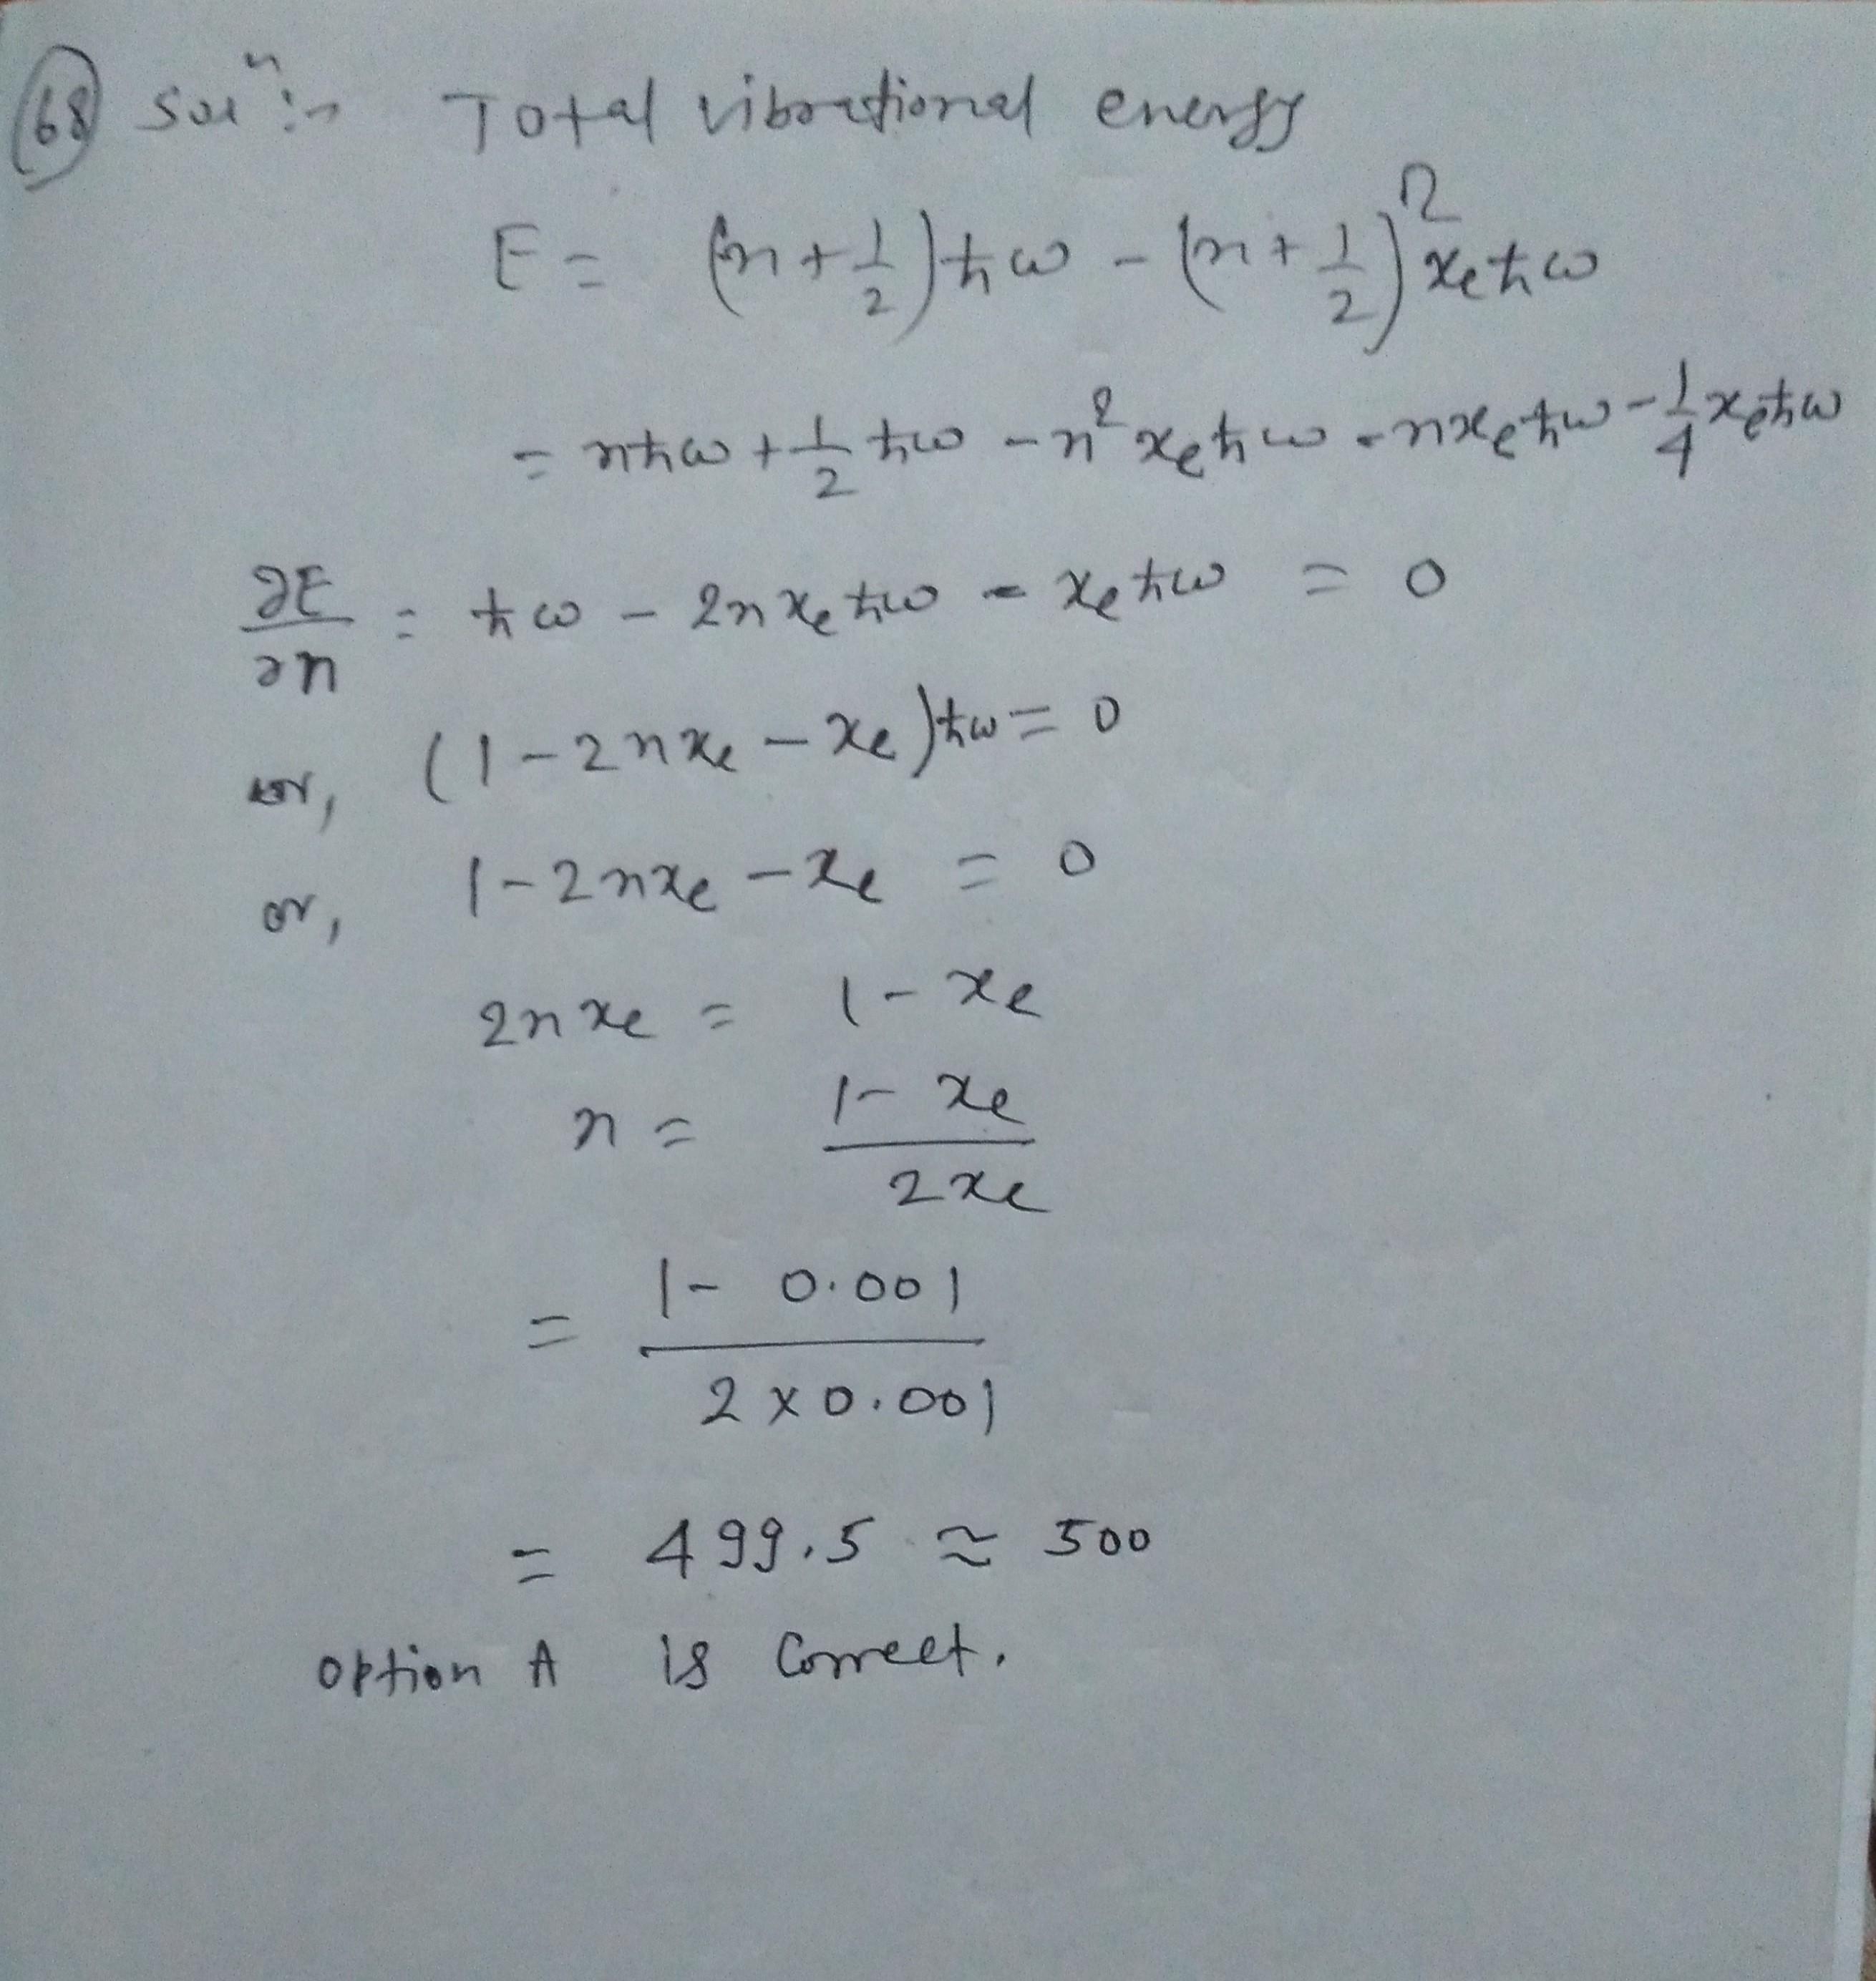 68 Solⁿ :- Total vibrational energy
E = (n + 1/2)ħω - (n + 1/2)² xₑħω
= nħω + 1/2 ħω - n² xₑħω - nxₑħω - 1/4 xₑħω
∂E/∂n = ħω - 2nxₑħω - xₑħω = 0
or, (1 - 2nxₑ - xₑ)ħω = 0
or, 1 - 2nxₑ - xₑ = 0
2nxₑ = 1 - xₑ
n = (1 - xₑ)/(2xₑ)
= (1 - 0.001)/(2 × 0.001)
= 499.5 ≈ 500
option A is correct.